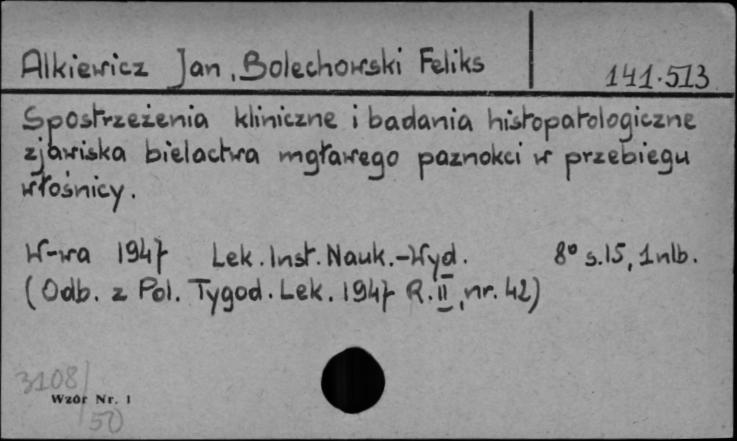 Alkiewicz Jan, Bolechowski Feliks
141.513
Spostrzeżenia kliniczne i badania histopatologiczne
zjawiska bielactwa mgławego paznokci w przebiegu
włośnicy.
W-wa 1947 Lek. Inst. Nauk.-Wyd. 8° s.15, 1nlb.
(Odb. z Pol. Tygod. Lek. 1947 R. II, nr. 42)
3108/
Wzór Nr. 1
50